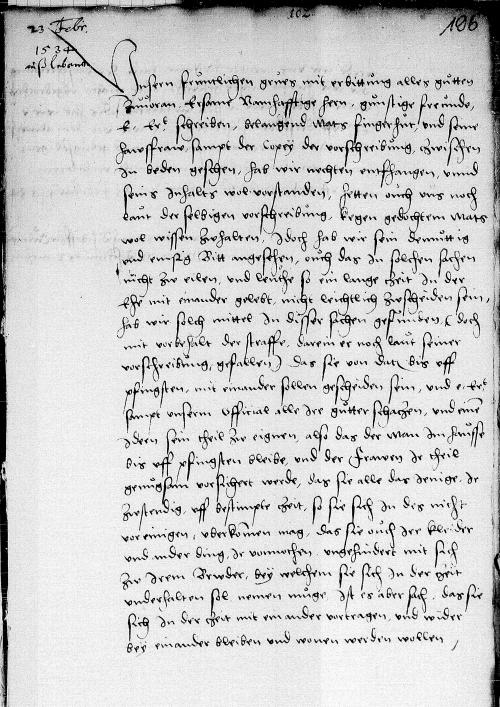 102
106
23 Febr.
1534
auß lebent
Unsern fruntlichen grues mit erbittung alles gutten
zuuoran, Ersame Namhafftige hern, gunstige freunde,
E. Ert schreiben, belangend Mats fingerhut, und seine
hawsfraw, sampt der Copey der vorschreibung, zwischen
In beden geschen, hab wir nechten entfhangen, unnd
seins Inhalts wol vorstanden, hetten ouch uns noch
laut der selbigen vorschreibung, kegen gedochtem Mats
wol wissen zuhalten, Idoch hab wir sein demuttig
und emsig Bitt angesehen, ouch das In solchen sachen
nicht zw eilen, und leuthe so ein lange zeit In der
Ehe mit einander gelebt, nicht leichtlich zuscheiden sein,
hab wir solch mittel In disser sachen gefunden, (doch
mit vorbehalt der straffe, darein er noch laut seiner
vorschreibung, gefallen) das sie von dat. bis uff
pfingsten, mit einander sollen gescheiden sein, und e. Ert
sampt unserm Official alle Ire gutter schaczen, und eim
Ideen sein theil zw eignen, also das der Man Im hausse
bis uff pfingsten bleibe, und der frawen Ir theil
genugsam vorsichert werde, das sie alle das Jenige, Ir
zustendig, uff bestimpte zeit, so sie sich In des nicht
voreinigen, uberkomen mag, das sie ouch Ire kleider
und ander ding, Ir vormochen ungehindert mit sich
zw Irem Bruder, bey welchem sie sich In der zeit
underhalten sol nemen muge, Ist es aber sach, das sie
sich In der zeit mit einander vortragen, und wider
bey einander bleiben und wonen werden wollen,